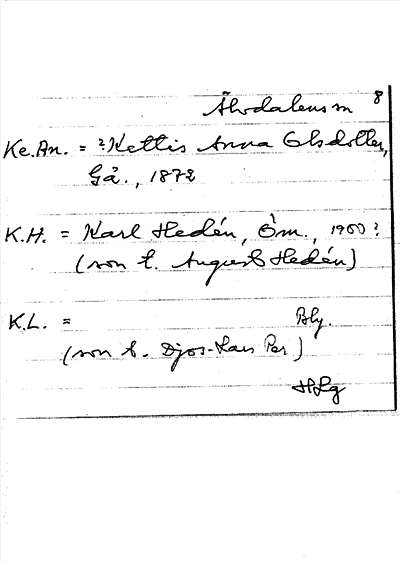 Älvdalens m 8
Ke.An. = ? Kettis Anna Olsdotter,
Gå., 1872
K.H. = Karl Hedén, Öm., 1900?
(son t. August Hedén)
K.L. = Bly.
(son t. Djos-Lars Per)